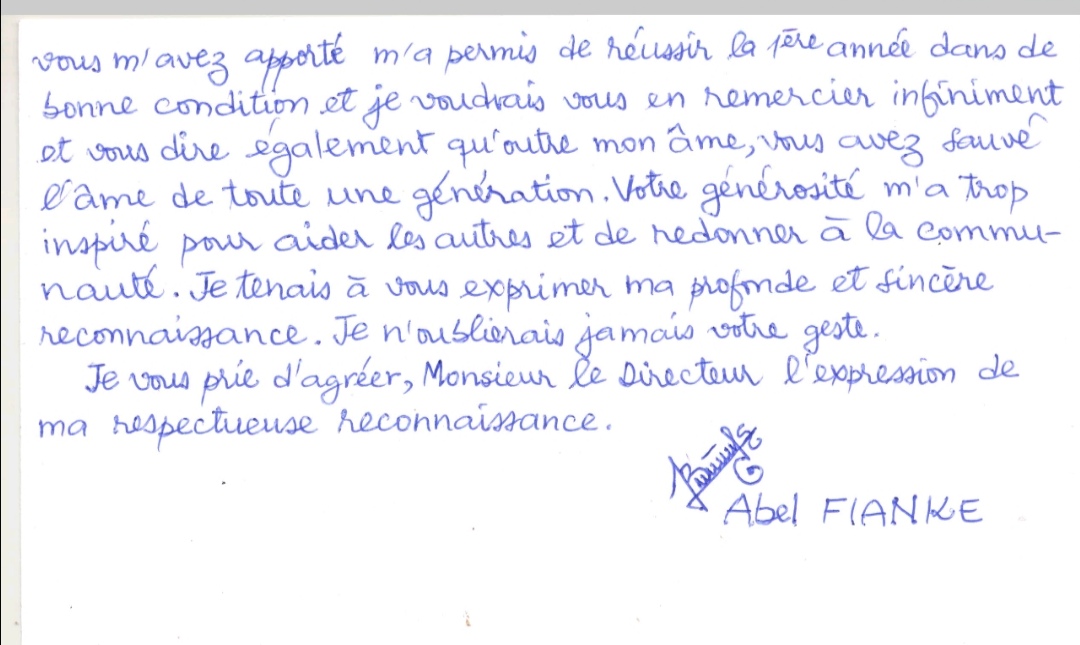 vous m'avez apporté m'a permis de réussir la 1ère année dans de
bonne condition et je voudrais vous en remercier infiniment
et vous dire également qu'outre mon âme, vous avez sauvé
l'âme de toute une génération. Votre générosité m'a trop
inspiré pour aider les autres et de redonner à la commu-
nauté. Je tenais à vous exprimer ma profonde et sincère
reconnaissance. Je n'oublierais jamais votre geste.
Je vous prie d'agréer, Monsieur le Directeur l'expression de
ma respectueuse reconnaissance.
Abel FIANKE